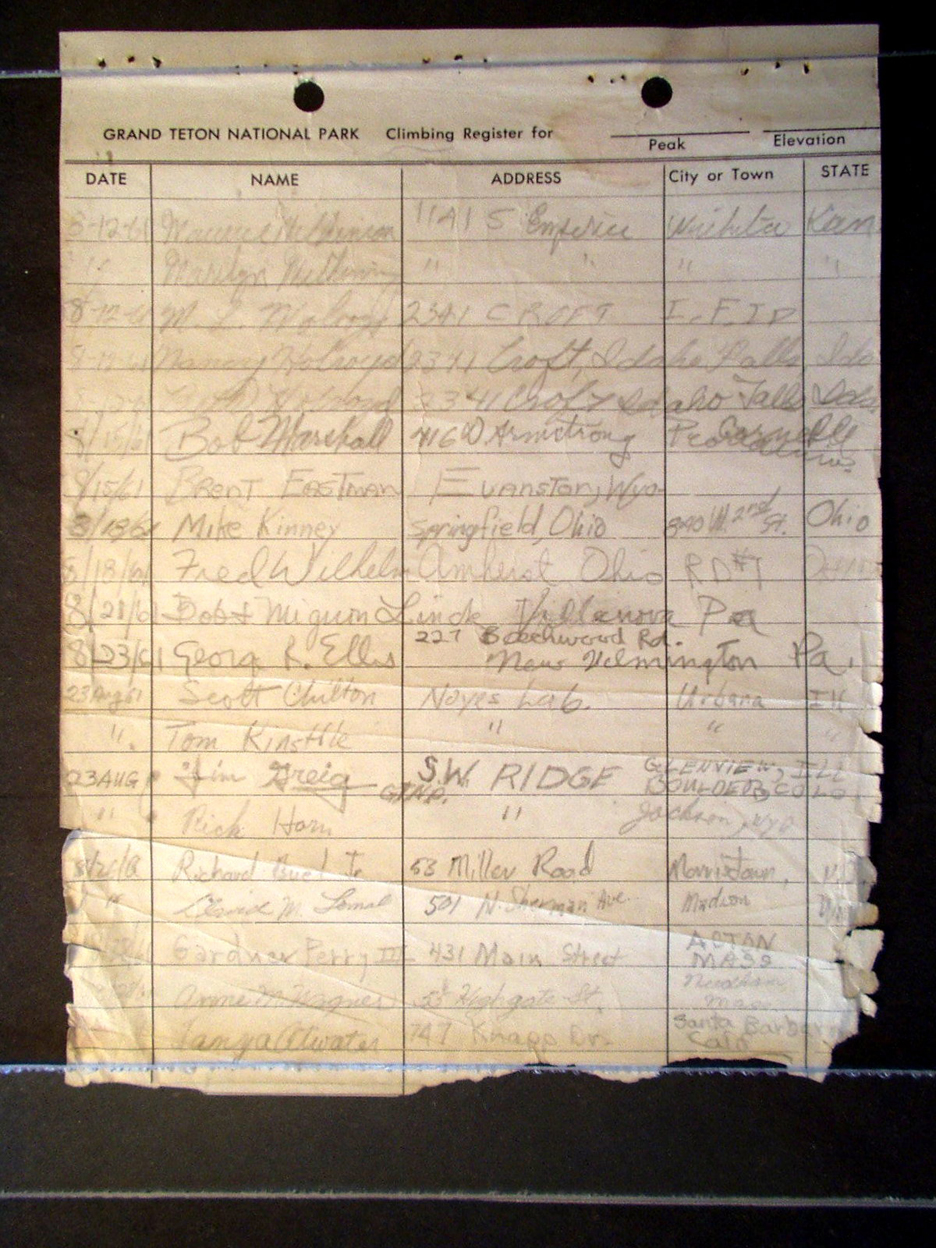 GRAND TETON NATIONAL PARK Climbing Register for
Peak Elevation
DATE NAME ADDRESS City or Town STATE
8-12-61 1141 S Emporia Wichita Kan
" Marilyn " " " "
8-12-61 M. L. Holroyd 2341 CROFT I.F. ID
Nancy Holroyd 2341 Croft, Idaho Falls Ida
Holroyd 2341 Croft Idaho Falls Ida
8/15/61 Bob Marshall 416 W Armstrong Peoria
8/15/61 BRENT EASTMAN EVANSTON, Wyo
8/18/61 Mike Kinney Springfield, Ohio 2nd St. Ohio
8/18/61 Fred Wilhelm Amherst Ohio RD#1
8/21/61 Bob & Mignon Linde Villanova Pa
227 Beechwood Rd.
8/23/61 Georg R. Ellis New Wilmington Pa.
23 Aug 61 Scott Chilton Noyes Lab. Urbana Ill
" Tom Kinstle " " "
23 AUG Jim Greig S.W. RIDGE GLENVIEW, ILL
G.T.N.P. BOULDER, COLO
" Rick Horn " Jackson, Wyo
Richard Buel Jr. 53 Miller Road Morristown, N.J.
M. 501 N. Sherman Ave. Madison
Gardner Perry III 431 Main Street ACTON
MASS
Anne M. Wagner Highgate St. Needham
Mass
Tanya Atwater 747 Knapp Drs Santa Barbara
Calif